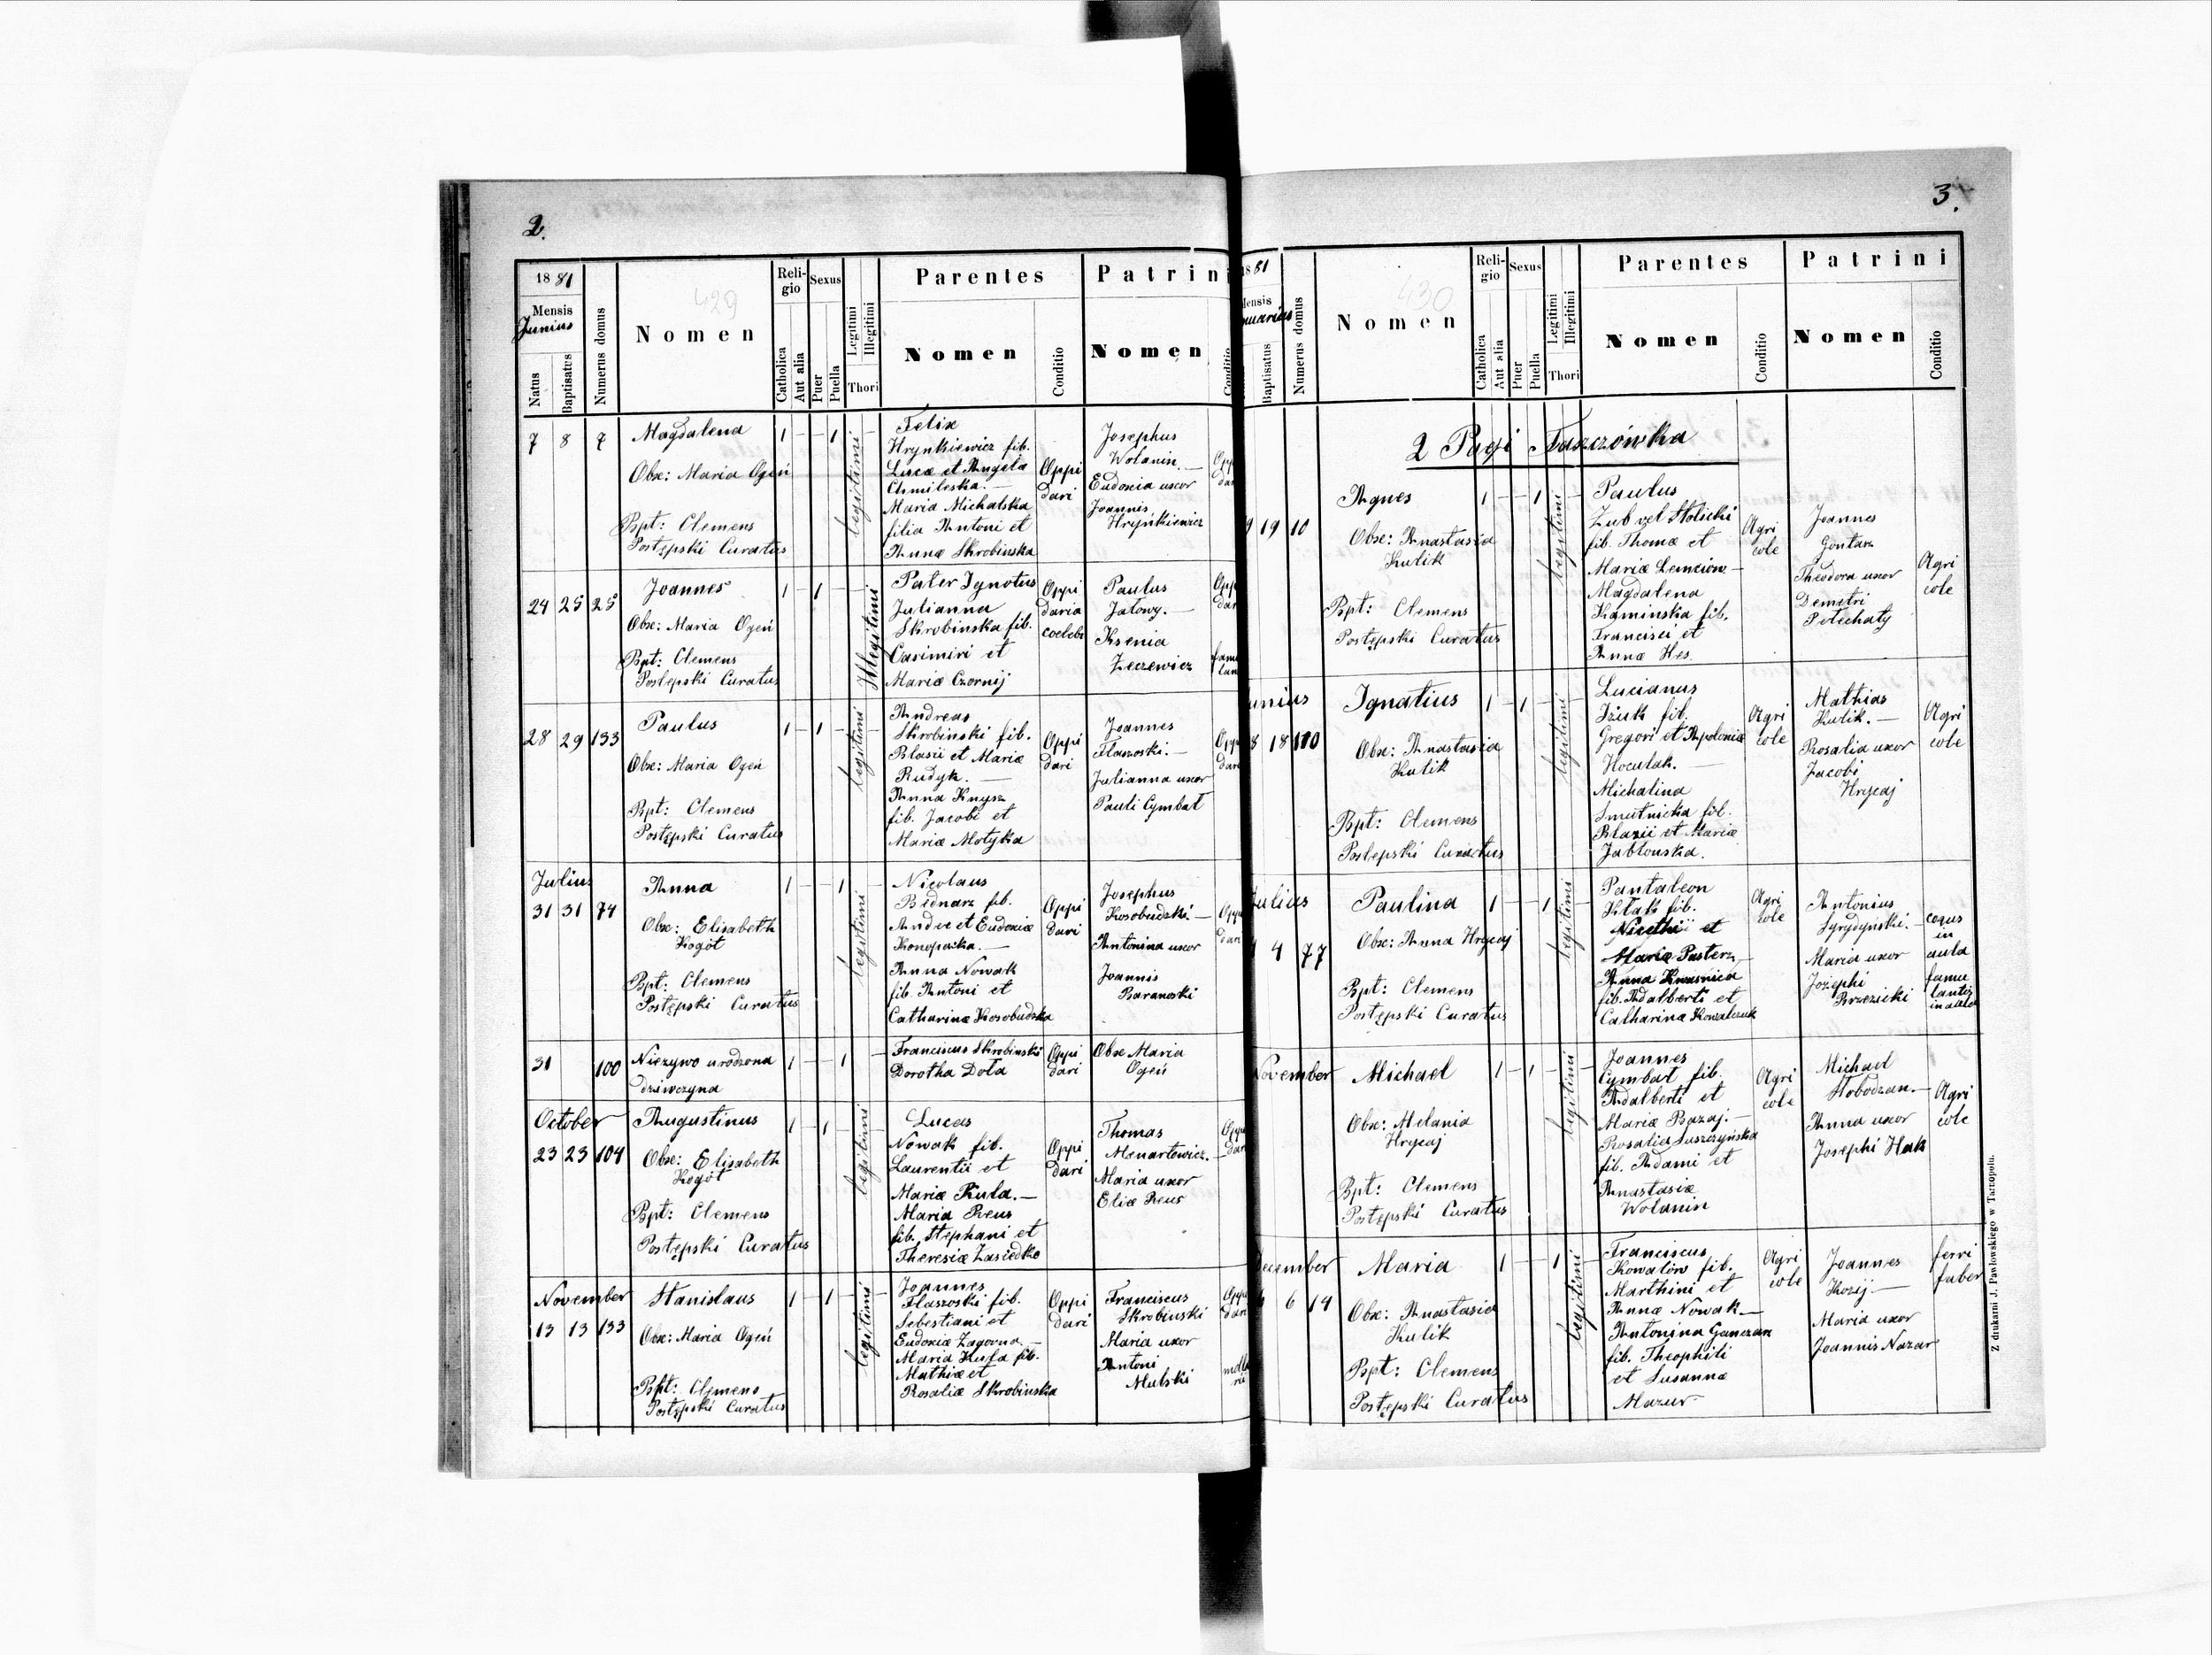 2.
1881
Mensis
Junius
Natus
Baptisatus
Numerus domus
429
Nomen
Religio
Catholica
Aut alia
Sexus
Puer
Puella
Legitimi
Illegitimi
Thori
Parentes
Nomen
Conditio
Patrini
Nomen
Conditio
7 8 7
Magdalena
Obx: Maria Ogeń
Bpt: Clemens
Postępski Curatus
1 1
legitimi
Felix
Hrynkiewicz fil.
Lucæ et Angela
Chmileska.—
Maria Michalska
filia Antoni et
Annæ Skrobinska
Oppi
dari
Josephus
Wolanin.—
Eudoxia uxor
Joannis
Hryńkiewicz
24 25 25
Joannes
Obx: Maria Ogeń
Bpt: Clemens
Postępski Curatus
1 1
Illegitimi
Pater Ignotus
Julianna
Skrobinska fil.
Casimiri et
Mariæ Czornij
Oppi
daria
coelebs
Paulus
Jalowy.—
Ksenia
Zeczewicz
28 29 133
Paulus
Obx: Maria Ogeń
Bpt: Clemens
Postępski Curatus
1 1
legitimi
Andreas
Skrobinski fil.
Blasii et Mariæ
Rudyk.—
Anna Knysz
fil. Jacobi et
Mariæ Motyka
Oppi
dari
Joannes
Flaszoski—
Julianna uxor
Pauli Cymbał
Julius
31 31 74
Anna
Obx: Elisabeth
Kogót
Bpt: Clemens
Postępski Curatus
1 1
legitimi
Nicolaus
Bednarz fil.
Andre et Eudoxiæ
Konopacka.—
Anna Nowak
fil. Antoni et
Catharinæ Kosobudzka
Oppi
dari
Josephus
Kosobudzki—
Antonina uxor
Joannis
Baranoski
31 100
Nieżywo urodzona
dziwczyna
1 1
Franciscus Skrobinski
Dorotha Dola
Oppi
dari
Obx Maria
Ogeń
October
23 23 104
Augustinus
Obx: Elisabeth
Kogót
Bpt: Clemens
Postępski Curatus
1 1
legitimi
Lucas
Nowak fil.
Laurentii et
Mariæ Kula.—
Maria Reus
fil. Stephani et
Theresiæ Zasiedko
Oppi
dari
Thomas
Menartowicz.—
Maria uxor
Eliæ Reus
November
13 13 133
Stanislaus
Obx: Maria Ogeń
Bpt: Clemens
Postępski Curatus
1 1
legitimi
Joannes
Flaszoski fil.
Sebestiani et
Eudoxiæ Zagorna—
Maria Kula fil.
Mathiæ et
Rosaliæ Skrobinska
Oppi
dari
Franciscus
Skrobinski
Maria uxor
Antoni
Mulski
3.
430
Baptisatus
Numerus domus
Nomen
Religio
Catholica
Aut alia
Sexus
Puer
Puella
Legitimi
Illegitimi
Thori
Parentes
Nomen
Conditio
Patrini
Nomen
Conditio
2 Pagi Taszczówka
19 10
Agnes
Obx: Anastasia
Kulik
Bpt: Clemens
Postępski Curatus
1 1
legitimi
Paulus
Zub vel Stolicki
fil. Thomæ et
Mariæ Lemciów—
Magdalena
Kaminska fil.
Francisci et
Annæ Hes
Agri
colæ
Joannes
Gontarz
Theodora uxor
Demetri
Potechaty
Agri
cole
Ignatius
Obx: Anastasia
Kulik
Bpt: Clemens
Postępski Curactus
18 110
1 1
legitimi
Lucianus
Dziuk fil.
Gregori et Apoloniæ
Hoculak.—
Michalina
Smutnicka fil.
Blazii et Mariæ
Jabłonska.
Agri
cole
Mathias
Kulik.—
Rosalia uxor
Jacobi
Hrycaj
Agri
cole
Julius
4 77
Paulina
Obx: Anna Hrycaj
Bpt: Clemens
Postępski Curatus
1 1
legitimi
Pantaleon
Kłak fil.
et
Mariæ Pasterz—
Anna Kwasnica
fil. Adalberti et
Catharinæ Kowalczuk
Agri
cole
Antonius
Syrydyński.—
Maria uxor
Jozephi
Brzezicki
coqus
in
aula
famu
lantis
in aula
November
Michael
Obx: Melania
Hrycaj
Bpt: Clemens
Postępski Curatus
1 1
legitimi
Joannes
Cymbał fil.
Adalberti et
Mariæ Bazaj.—
Rosalia Suszczyńska
fil. Adami et
Anastasiæ
Wolanin
Agri
cole
Michael
Slobodzan.—
Anna uxor
Josephi Hak
Agri
cole
December
6 14
Maria
Obx: Anastasia
Kulik
Bpt: Clemens
Postępski Curatus
1 1
legitimi
Franciscus
Kowalów fil.
Marthini et
Annæ Nowak—
Antonina Ganczar
fil. Theophili
et Susannæ
Mazur
Agri
cole
Joannes
Kozij—
Maria uxor
Joannis Nazar
ferri
faber
Z drukarni J. Pawłowskiego w Tarnopolu.